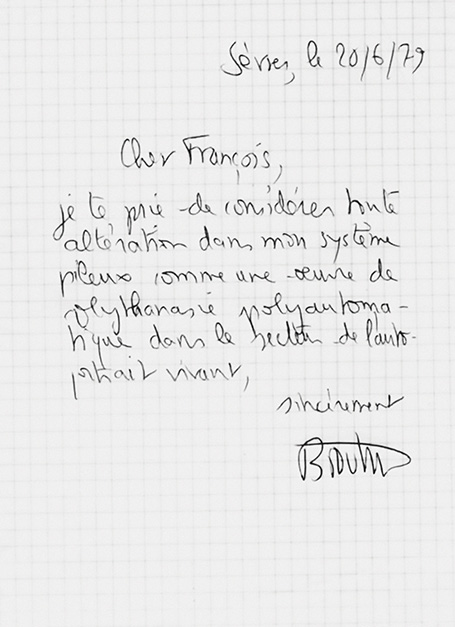 Sèvres, le 20/6/79
Cher François,
je te prie de considérer toute
altération dans mon système
pileux comme une œuvre de
polythanasie polyautoma-
tique dans le secteur de l'auto-
portrait vivant,
sincèrement